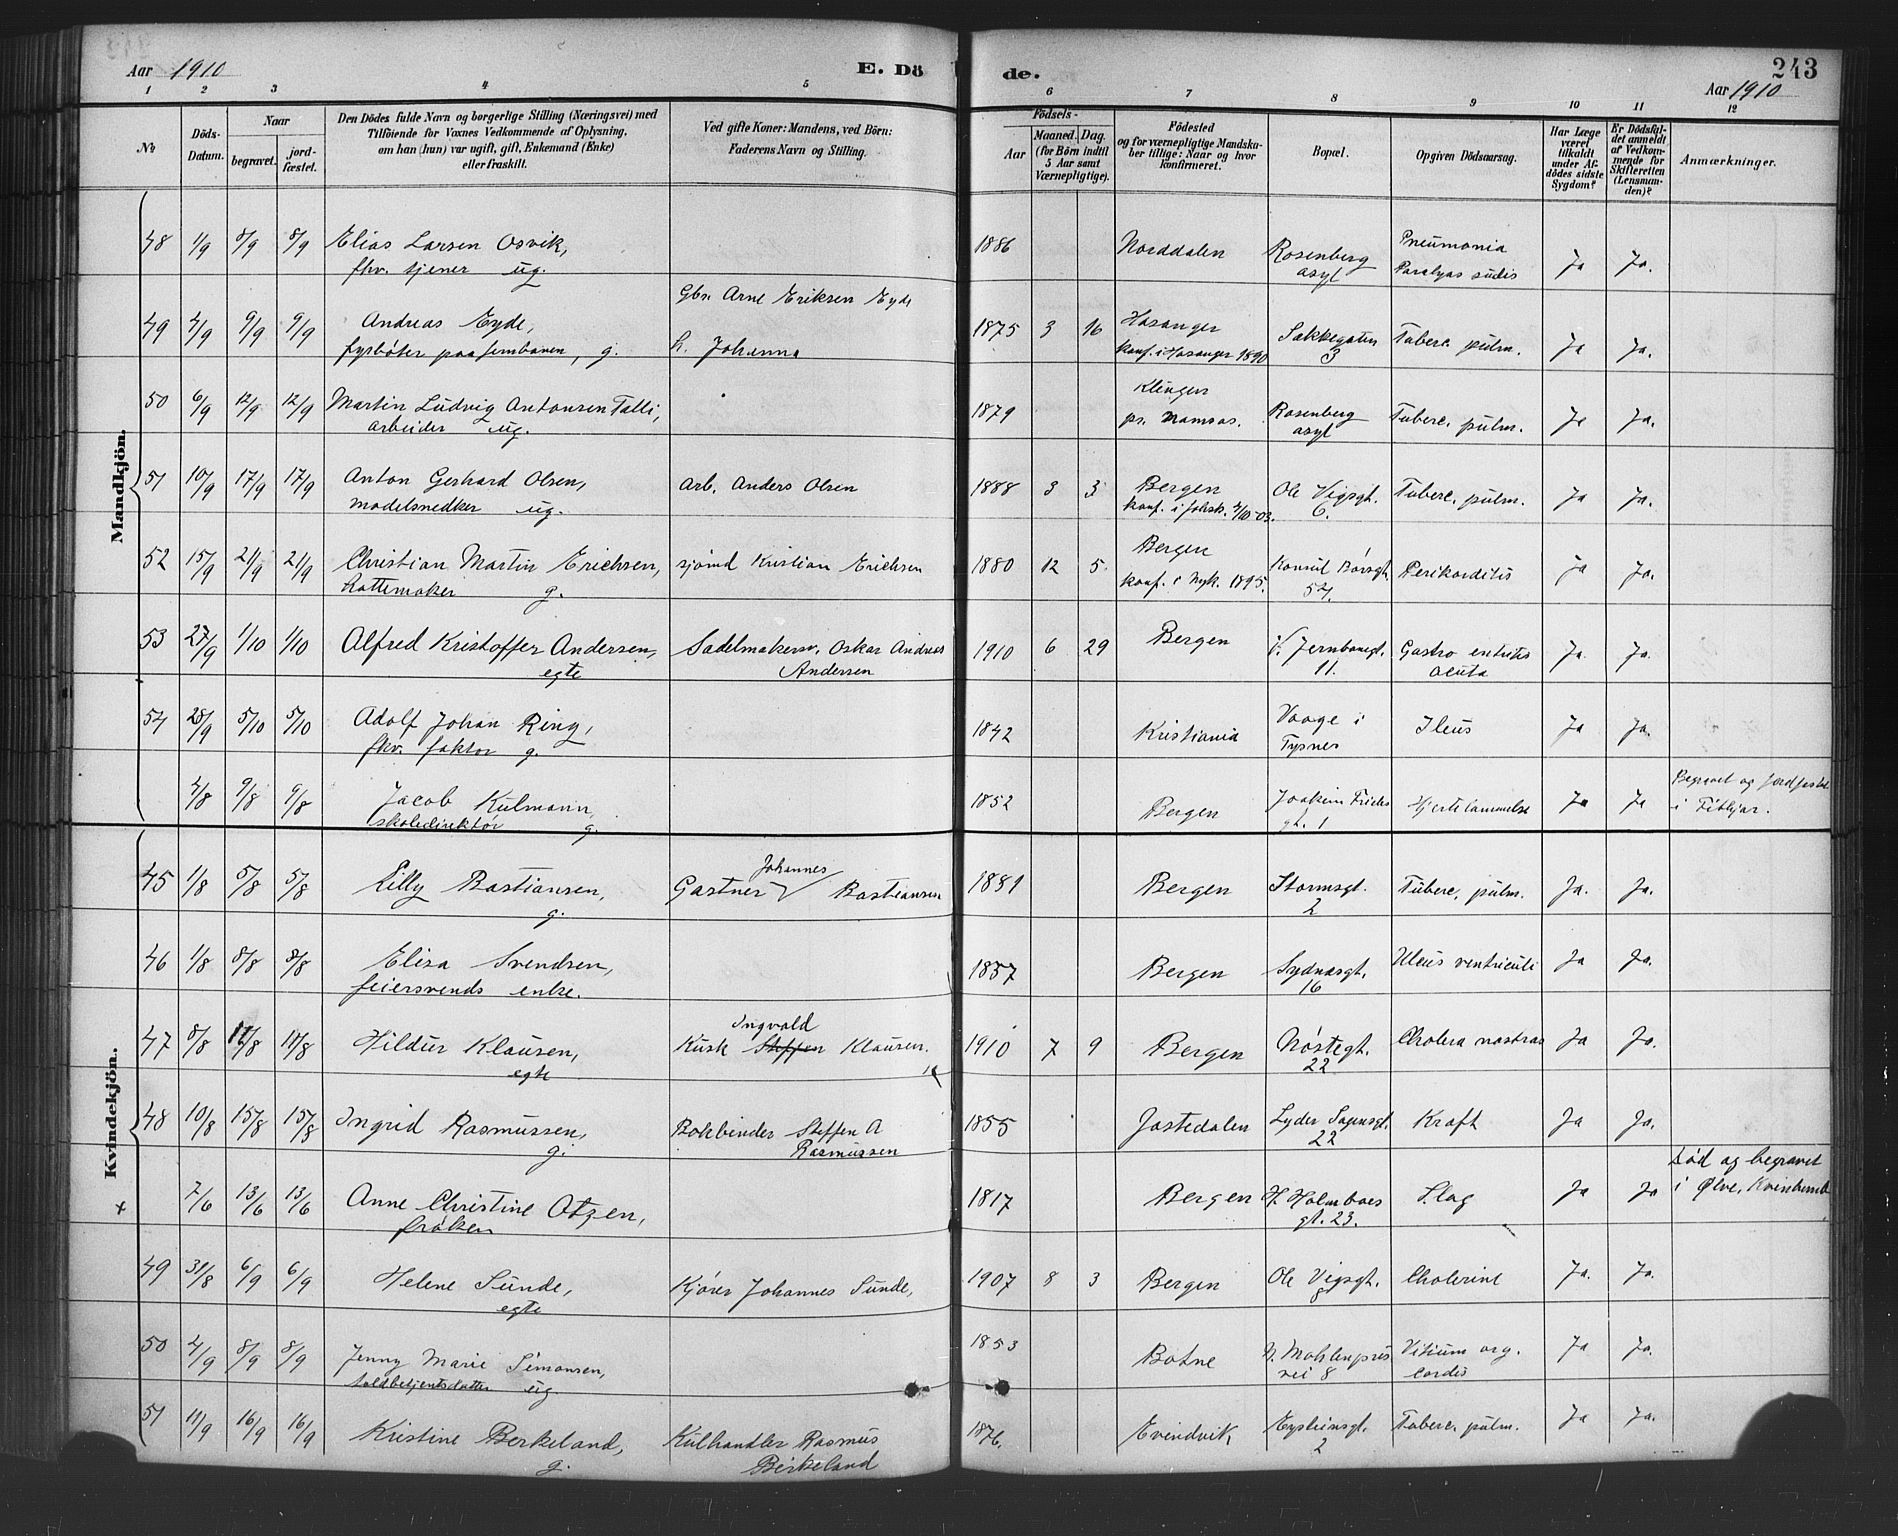 Aar 1910
E. Dö
de.
243
Aar 1910
1 2 3 4 5 6 7 8 9 10 11 12
No
Döds-
Datum.
Naar
begravet.
jord-
fæstet.
Den Dödes fulde Navn og borgerlige Stilling (Næringsvei) med
Tilföiende for Voxnes Vedkommende af Oplysning,
om han (hun) var ugift, gift, Enkemand (Enke)
eller fraskilt.
Ved gifte Koner: Mandens, ved Börn:
Faderens Navn og Stilling.
Födsels-
Aar
Maaned. Dag.
(for Börn indtil
5 Aar samt
Værnepligtige).
Födested
og for værnepligtige Mandska-
ber tillige: Naar og hvor
konfirmeret.
Bopæl.
Opgiven Dödsaarsag.
Har Læge
været
tilkaldt
under Af-
dödes sidste
Sygdom?
Er Dödsfal-
det anmeldt
af Vedkom-
mende for
Skifteretten
(Lensman-
den)?
Anmærkninger.
Mandkjön.
48 1/9 8/9 8/9 Elias Larsen Osvik, 1886 Norddalen Rosenberg Pneumonia Ja Ja.
fhv. tjener ug. asyl
Gbr. Arne Eriksen Eyde
49 4/9 9/9 9/9 Andreas Eyde, 1875 3 16 Hosanger Sækkegaten Tuberc. pulm. Ja Ja.
fyrbøter paa jernbanen, g. h. Johanna konf. i Hosanger 1890 3
50 6/9 12/9 12/9 Martin Ludvig Antonsen Talli, 1879 Klingen Rosenberg Tuberc. pulm. Ja Ja.
arbeider ug. pr. Namsos. asyl
51 10/9 17/9 17/9 Anton Gerhard Olsen, Arb. Anders Olsen 1888 3 3 Bergen Ole Vigsgt. Tuberc. pulm. Ja Ja.
modelsnedker ug. konf. i Johsk. 4/10-03. 6.
52 15/9 21/9 21/9 Christian Martin Erichsen, sjømd Kristian Erichsen 1880 12 5 Bergen Konsul Børsgt. Perikarditis Ja Ja.
hattemaker g. konf. i Nyk. 1895.
53 27/9 1/10 1/10 Alfred Kristoffer Andersen, Sadelmakersv. Oskar Andreas 1910 6 29 Bergen V. Jernbanegt. Gastro entritis Ja Ja.
egte Andersen 11. acuta
54 28/9 5/10 5/10 Adolf Johan Ring, 1842 Kristiania Vaage i Ileus Ja Ja.
fhv. faktor g. Tysnes
4/8 9/8 9/8 Jacob Kulmann, 1852 Bergen Joakim Frieles Hjertelammelse Ja Ja Begravet og jordfæstet
skoledirektør g. gt. 1 i Fitbjar.
Kvindekjön.
45 1/8 5/8 5/8 Lilly Bastiansen, Gartner Johannes Bastiansen 1881 Bergen Stormsgt. Tuberc. pulm. Ja. Ja.
g. 2
46 1/8 8/8 8/8 Elisa Svendsen, 1857 Bergen Sydnæsgt. Ulcus ventriculi Ja Ja.
feiersvends enke. 16
47 8/8 11/8 11/8 Hildur Klausen, Kusk Steffen Ingvald Klausen. 1910 7 9 Bergen Nøstegt. Cholera nostras Ja Ja.
egte 22
48 10/8 15/8 15/8 Ingrid Rasmussen, Bokbinder Steffen A 1855 Jostedalen Lyder Sagensgt. Kræft Ja Ja.
g. Rasmussen 22
x 7/6 13/6 13/6 Anne Christine Otzen, 1817 Bergen H. Holmboes Slag Ja Ja Død og begravet
frøken gt. 23. i Ølve, Kvinherred
49 31/8 6/9 6/9 Helene Sunde, Kjører Johannes Sunde, 1907 8 3 Bergen Ole Vigsgt. Cholerine Ja. Ja.
egte 8
50 4/9 8/9 8/9 Jenny Marie Simonsen, 1853 Botne N. Møhlenpris Vitium org. Ja Ja.
toldbetjentsdatter ug vei 8 cordis
51 11/9 16/9 16/9 Kristine Berkeland, Kulhandler Rasmus 1876. Evindvik Eysteinsgt. Tuberc. pulm. Ja Ja.
g. Birkeland 2